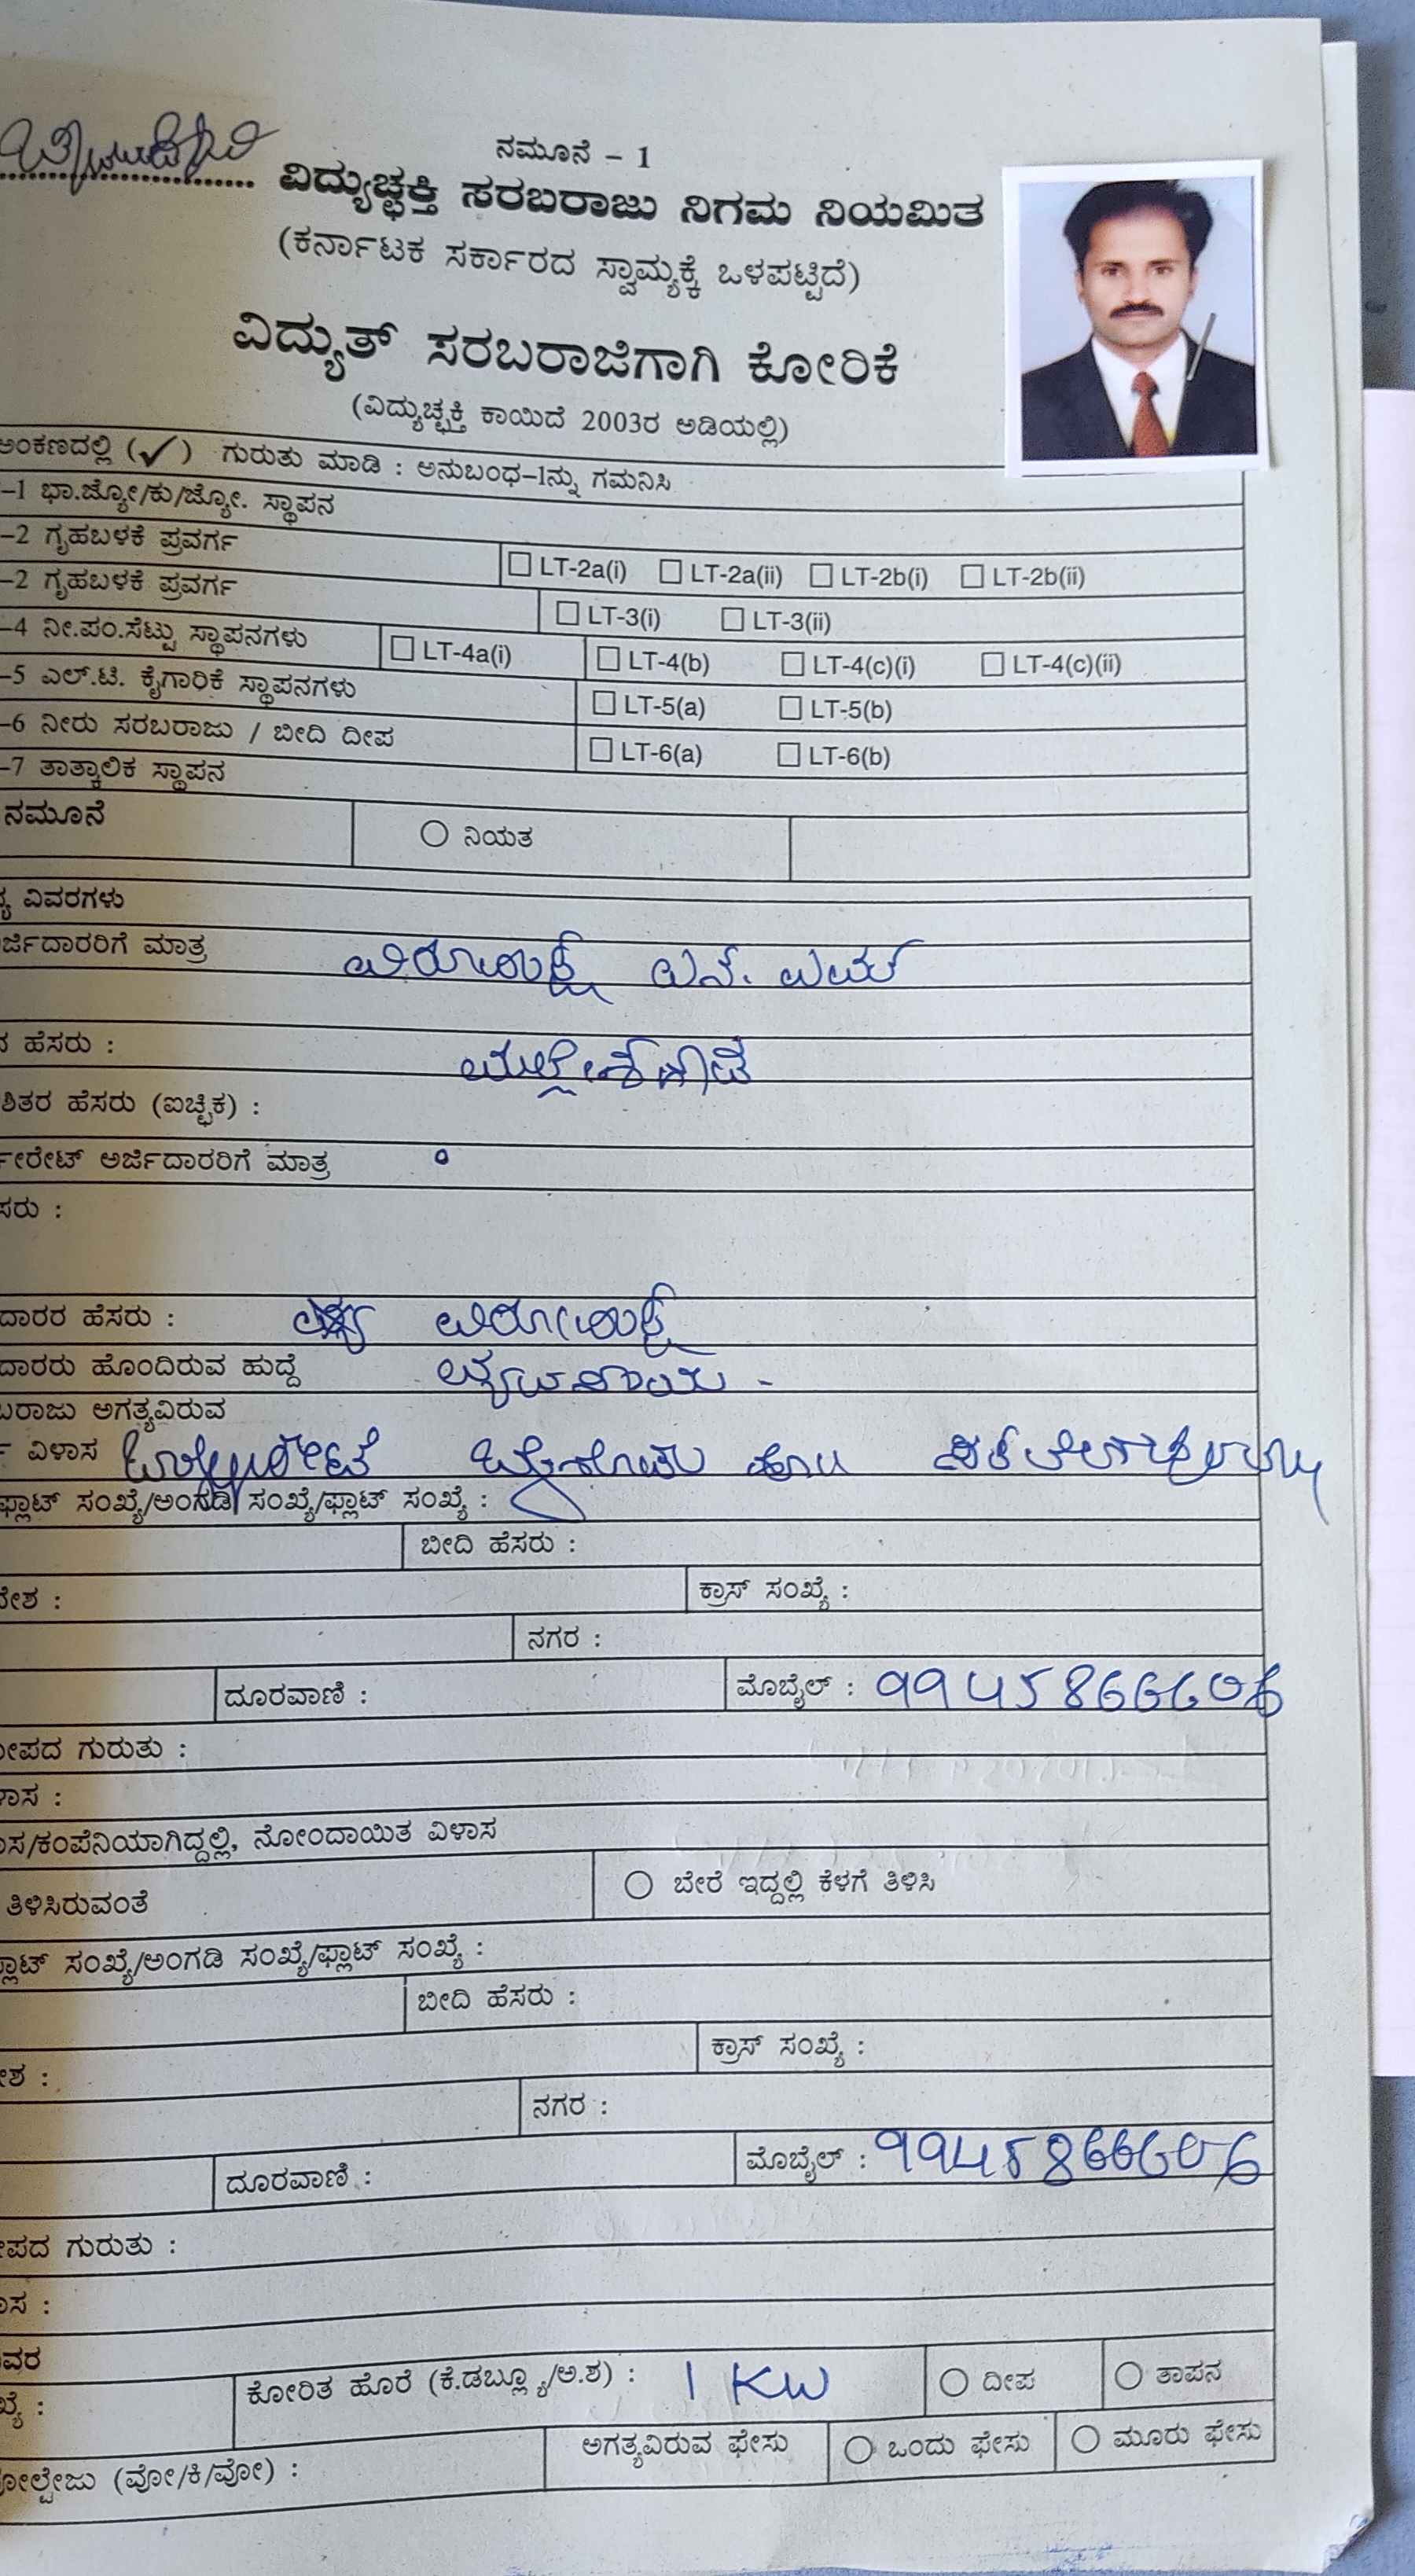 ನಮೂನೆ – 1
ವಿದ್ಯುಚ್ಛಕ್ತಿ ಸರಬರಾಜು ನಿಗಮ ನಿಯಮಿತ
(ಕರ್ನಾಟಕ ಸರ್ಕಾರದ ಸ್ವಾಮ್ಯಕ್ಕೆ ಒಳಪಟ್ಟಿದೆ)
ವಿದ್ಯುತ್ ಸರಬರಾಜಿಗಾಗಿ ಕೋರಿಕೆ
(ವಿದ್ಯುಚ್ಛಕ್ತಿ ಕಾಯಿದೆ 2003ರ ಅಡಿಯಲ್ಲಿ)
ಅಂಕಣದಲ್ಲಿ (✓) ಗುರುತು ಮಾಡಿ : ಅನುಬಂಧ–1ನ್ನು ಗಮನಿಸಿ
–1 ಭಾ.ಜ್ಯೋ/ಕು/ಜ್ಯೋ. ಸ್ಥಾಪನ
–2 ಗೃಹಬಳಕೆ ಪ್ರವರ್ಗ LT-2a(i) LT-2a(ii) LT-2b(i) LT-2b(ii)
–2 ಗೃಹಬಳಕೆ ಪ್ರವರ್ಗ LT-3(i) LT-3(ii)
–4 ನೀ.ಪಂ.ಸೆಟ್ಟು ಸ್ಥಾಪನಗಳು LT-4a(i) LT-4(b) LT-4(c)(i) LT-4(c)(ii)
–5 ಎಲ್.ಟಿ. ಕೈಗಾರಿಕೆ ಸ್ಥಾಪನಗಳು LT-5(a) LT-5(b)
–6 ನೀರು ಸರಬರಾಜು / ಬೀದಿ ದೀಪ LT-6(a) LT-6(b)
–7 ತಾತ್ಕಾಲಿಕ ಸ್ಥಾಪನ
ನಮೂನೆ ನಿಯತ
ವಿವರಗಳು
ರ್ಜಿದಾರರಿಗೆ ಮಾತ್ರ ವಿರೂಪಾಕ್ಷ ಎನ್. ಎಮ್
ಹೆಸರು :
ಶಿತರ ಹೆಸರು (ಐಚ್ಛಿಕ) :
ರ್ಪೊರೇಟ್ ಅರ್ಜಿದಾರರಿಗೆ ಮಾತ್ರ
ಸರು :
ದಾರರ ಹೆಸರು : ವಿರೂಪಾಕ್ಷ
ದಾರರು ಹೊಂದಿರುವ ಹುದ್ದೆ
ಬರಾಜು ಅಗತ್ಯವಿರುವ
ವಿಳಾಸ
ಫ್ಲಾಟ್ ಸಂಖ್ಯೆ/ಅಂಗಡಿ ಸಂಖ್ಯೆ/ಫ್ಲಾಟ್ ಸಂಖ್ಯೆ :
ಬೀದಿ ಹೆಸರು :
ದೇಶ : ಕ್ರಾಸ್ ಸಂಖ್ಯೆ :
ನಗರ :
ದೂರವಾಣಿ : ಮೊಬೈಲ್ : 9945866606
ೀಪದ ಗುರುತು :
ಳಾಸ :
ಾಸ/ಕಂಪೆನಿಯಾಗಿದ್ದಲ್ಲಿ, ನೋಂದಾಯಿತ ವಿಳಾಸ
ತಿಳಿಸಿರುವಂತೆ ಬೇರೆ ಇದ್ದಲ್ಲಿ ಕೆಳಗೆ ತಿಳಿಸಿ
ಫ್ಲಾಟ್ ಸಂಖ್ಯೆ/ಅಂಗಡಿ ಸಂಖ್ಯೆ/ಫ್ಲಾಟ್ ಸಂಖ್ಯೆ :
ಬೀದಿ ಹೆಸರು :
ೇಶ : ಕ್ರಾಸ್ ಸಂಖ್ಯೆ :
ನಗರ :
ದೂರವಾಣಿ : ಮೊಬೈಲ್ : 9945866606
ೀಪದ ಗುರುತು :
ಾಸ :
ವರ
ಖ್ಯೆ : ಕೋರಿತ ಹೊರೆ (ಕೆ.ಡಬ್ಲ್ಯೂ/ಅ.ಶ) : 1 KW ದೀಪ ತಾಪನ
ಅಗತ್ಯವಿರುವ ಫೇಸು ಒಂದು ಫೇಸು ಮೂರು ಫೇಸು
ೋಲ್ಟೇಜು (ವೋ/ಕಿ/ವೋ) :